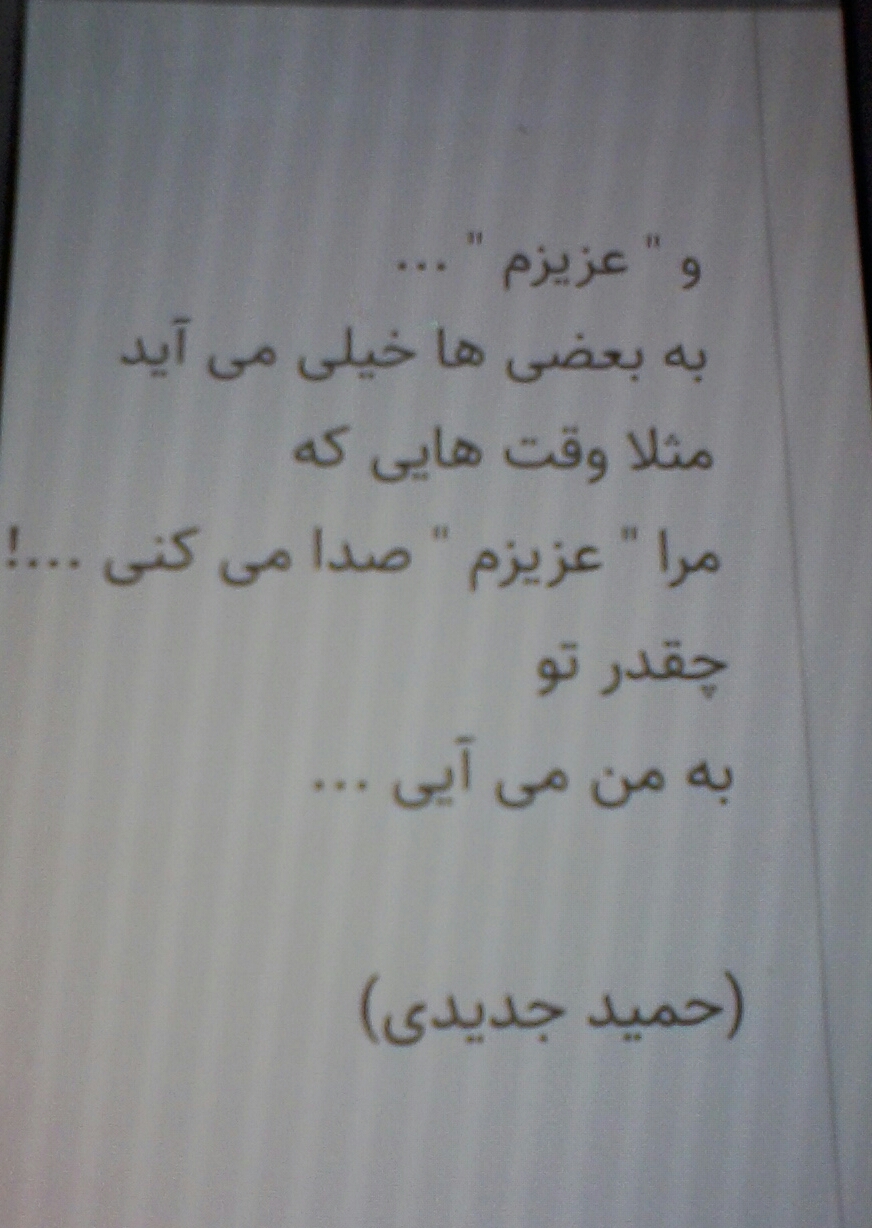 و " عزیزم " ...
به بعضی ها خیلی می آید
مثلا وقت هایی که
مرا " عزیزم " صدا می کنی ...!
چقدر تو
به من می آیی ...
(حمید جدیدی)